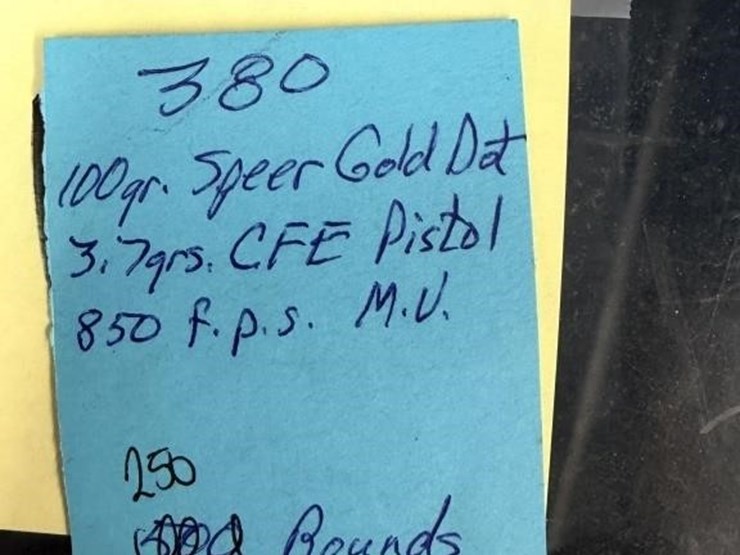 380
100gr. Speer Gold Dot
3.7grs. CFE Pistol
850 f.p.s. M.V.
250
Rounds